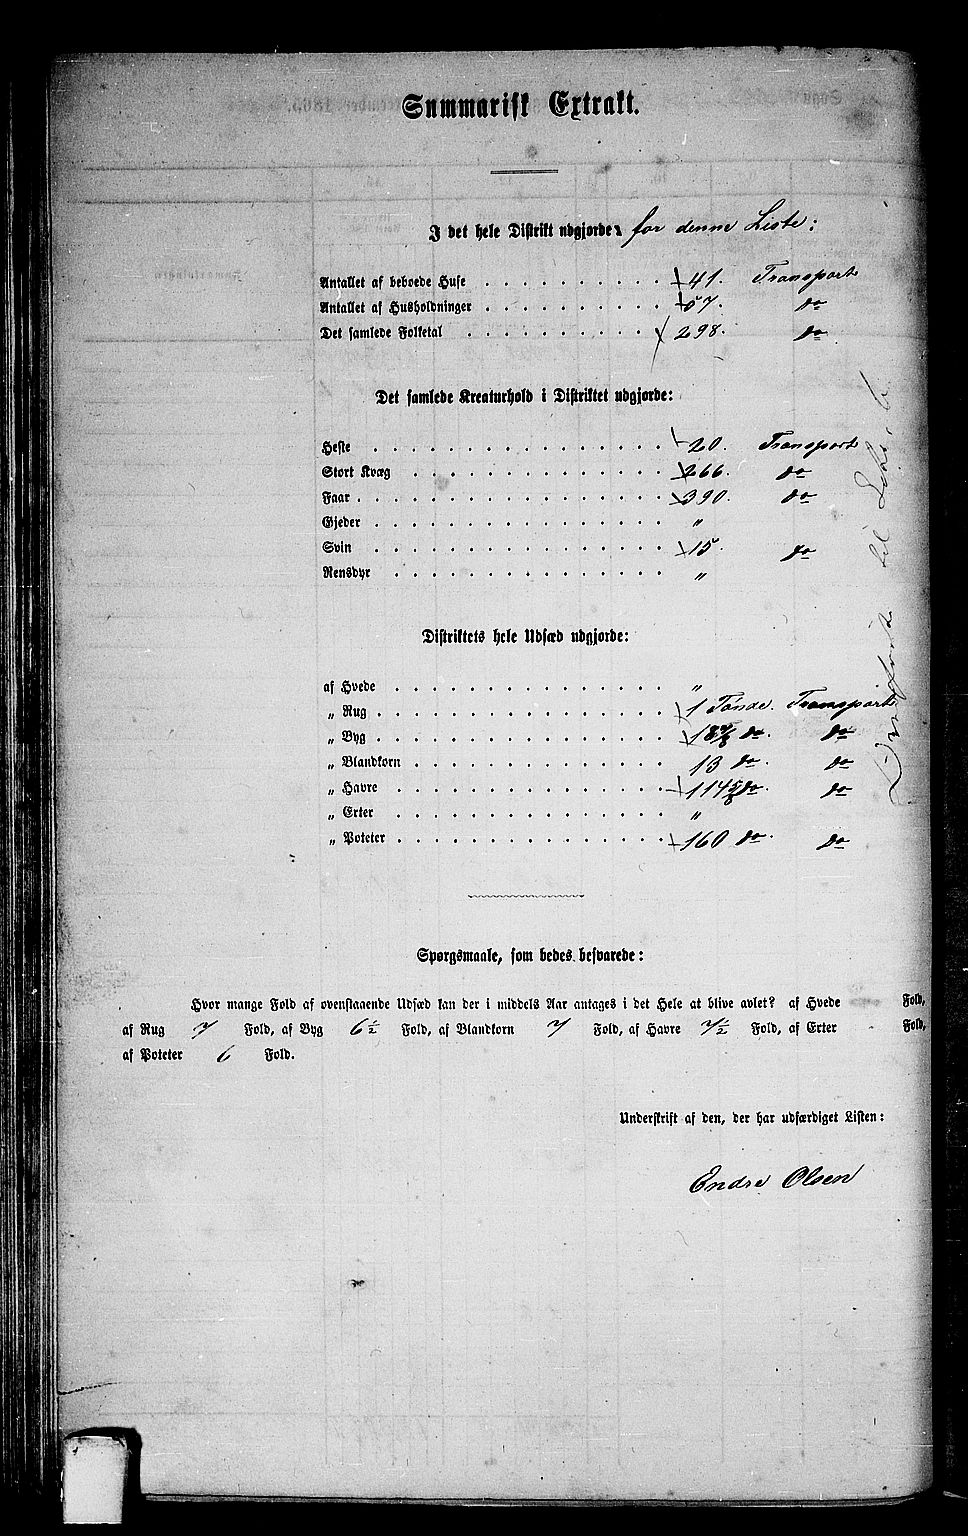 Summarisk Extrakt.
I det hele Distrikt udgjorde for denne Liste:
Antallet af beboede Huse . . . . . . . . . . 41. Transport
Antallet af Husholdninger . . . . . . . . . . 57. do
Det samlede Folketal . . . . . . . . . . 298. do
Det samlede Kreaturhold i Distriktet udgjorde:
Heste . . . . . . . . . . 20. Transport
Stort Kvæg . . . . . . . . . . 266. do
Faar . . . . . . . . . . 390. do
Gjeder . . . . . . . . . . "
Svin . . . . . . . . . . 15. do
Rensdyr . . . . . . . . . . "
Distriktets hele Udsæd udgjorde:
af Hvede . . . . . . . . . . "
„ Rug . . . . . . . . . . 1 Tønde. Transport
„ Byg . . . . . . . . . . do. do
„ Blandkorn . . . . . . . . . . 13 do. do
„ Havre . . . . . . . . . . 114 5/8 do. do
„ Erter . . . . . . . . . . "
„ Poteter . . . . . . . . . . 160 do. do
til
Spørgsmaale, som bedes besvarede:
Hvor mange Fold af ovenstaaende Udsæd kan der i middels Aar antages i det Hele at blive avlet? af Hvede Fold,
af Rug 7 Fold, af Byg 6 1/2 Fold, af Blandkorn 7 Fold, af Havre 7 1/2 Fold, af Erter Fold,
af Poteter 6 Fold.
Underskrift af den, der har udfærdiget Listen:
Endre Olsen